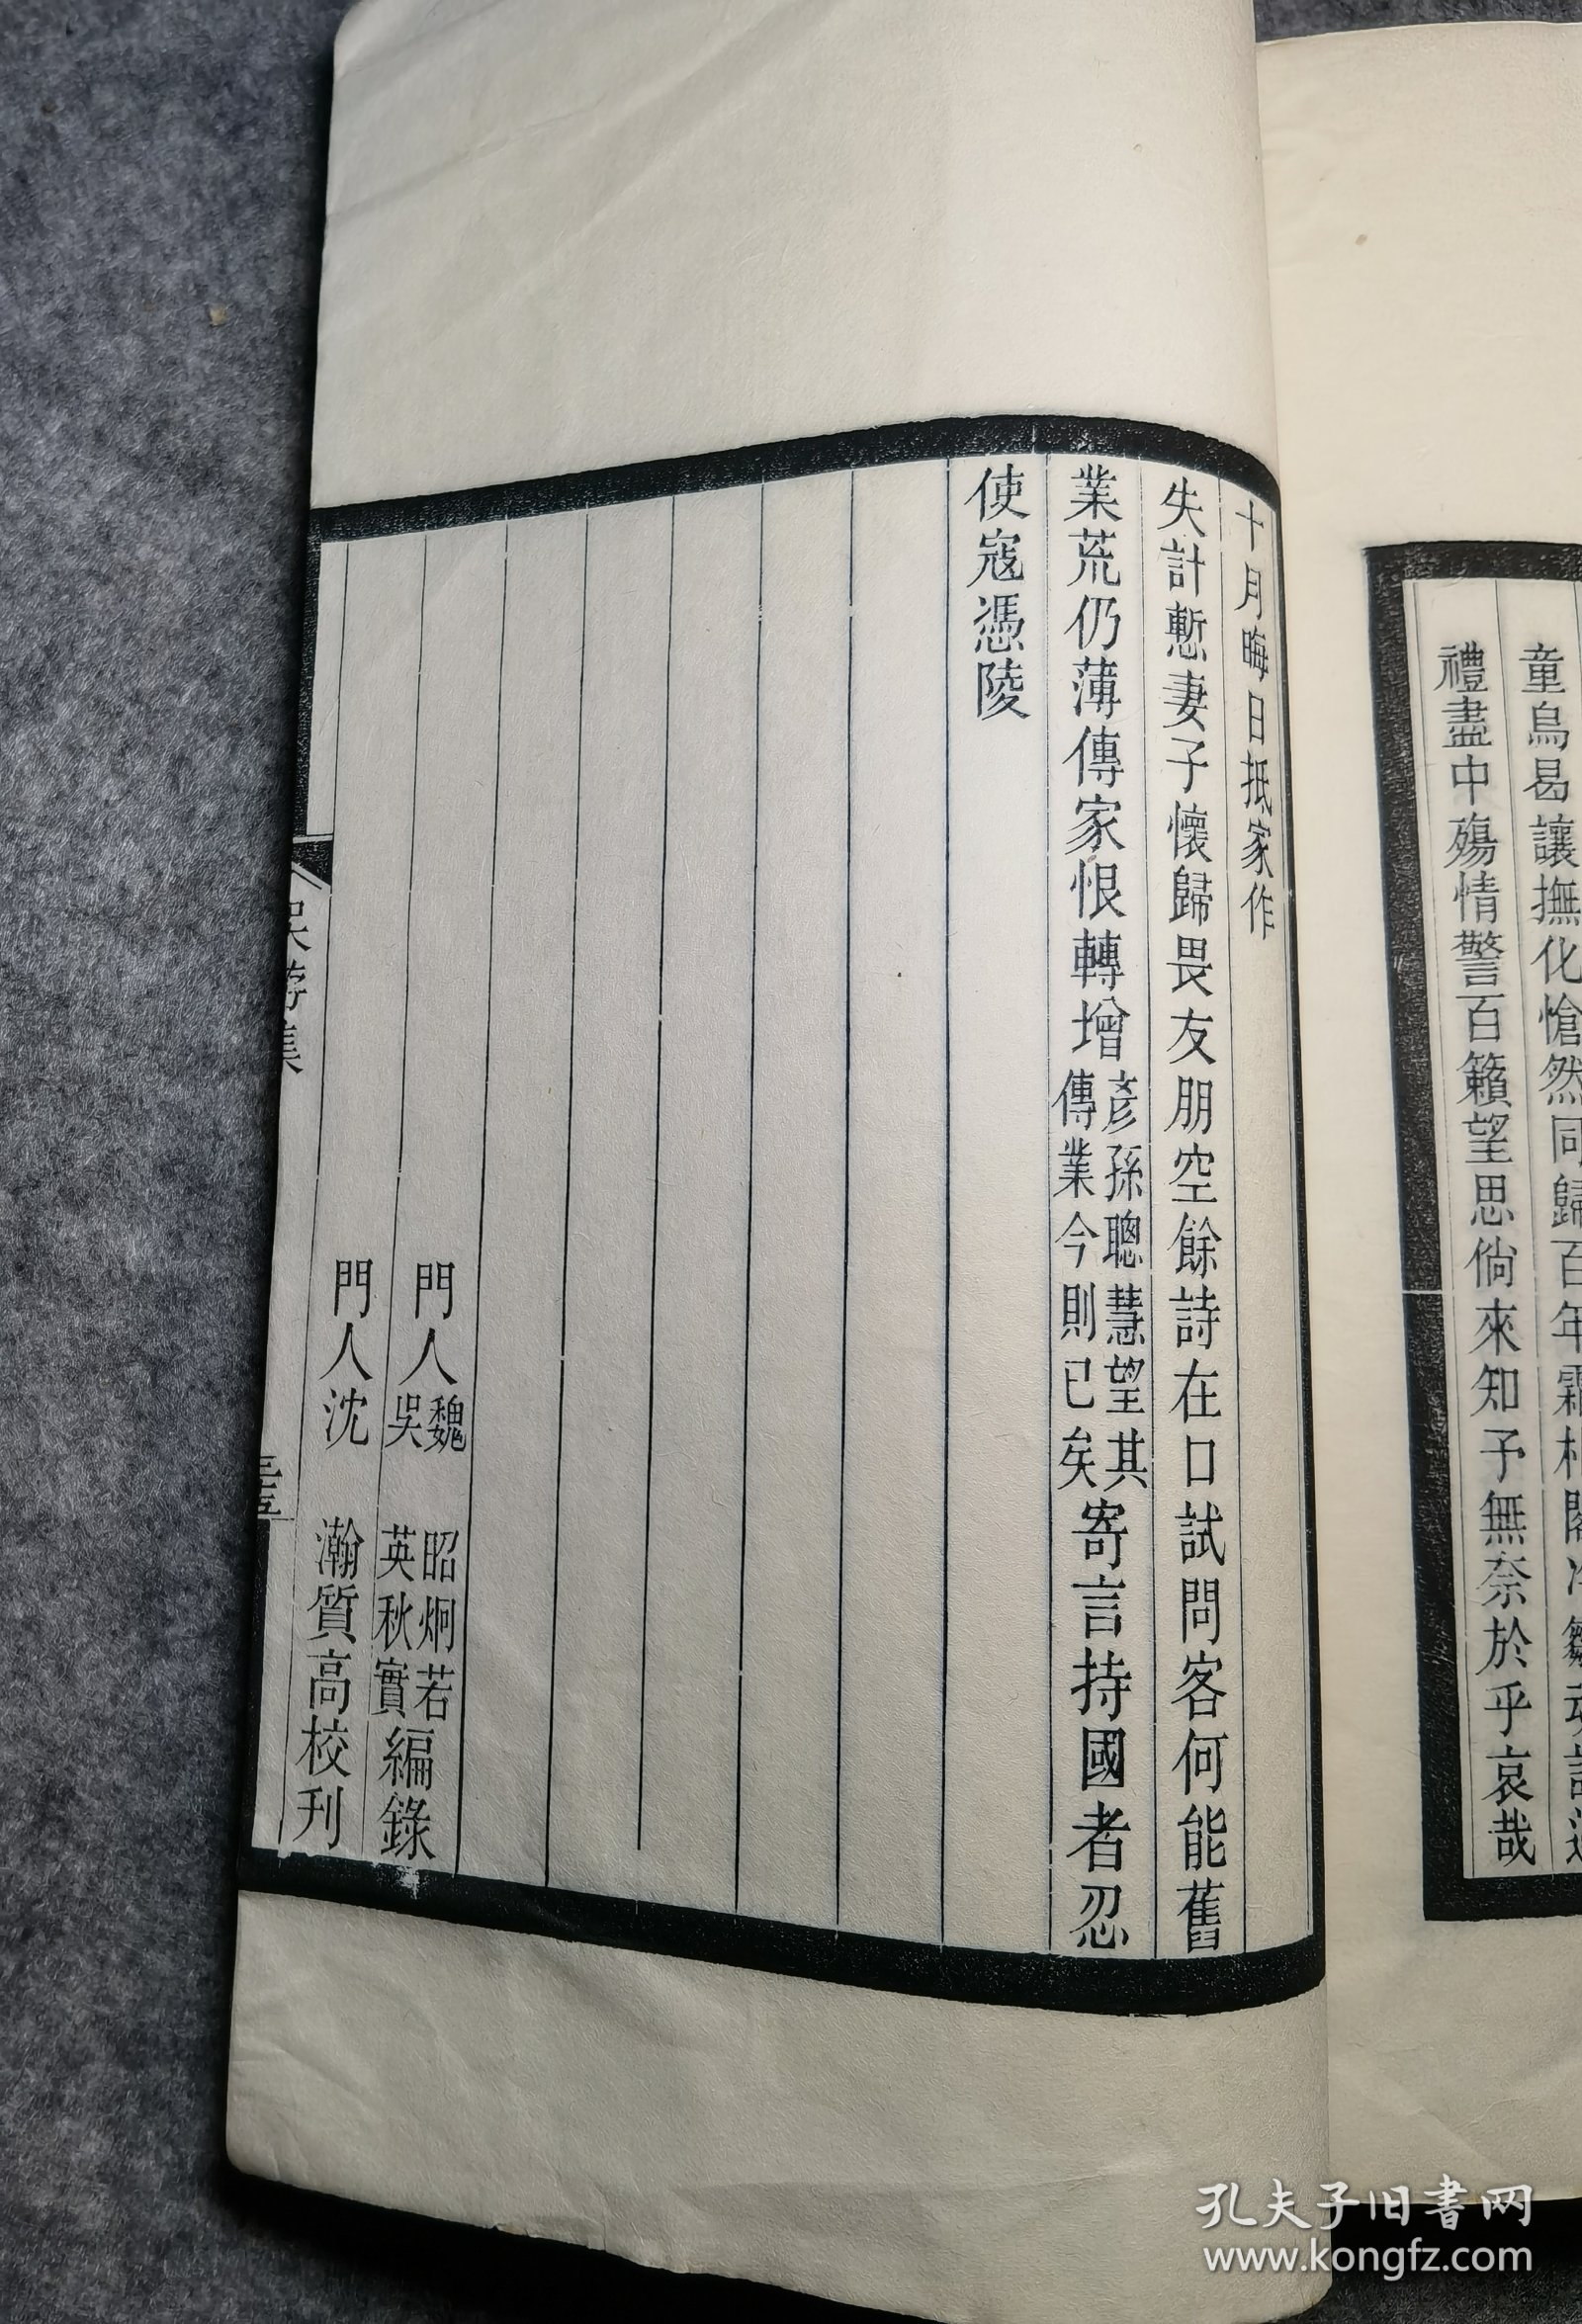 童烏曷讓撫化愴然同歸百年霜
禮盡中殤情警百籟望思倘來知予無奈於乎哀哉
十月晦日抵家作
失計慙妻子懷歸畏友朋空餘詩在口試問客何能舊
業荒仍薄傳家恨轉增彥孫聰慧望其傳業今則已矣寄言持國者忍
使寇憑陵
門人魏昭炯若
吳英秋實編錄
門人沈瀚質高校刊
吳游集
孔夫子旧书网
www.kongfz.com